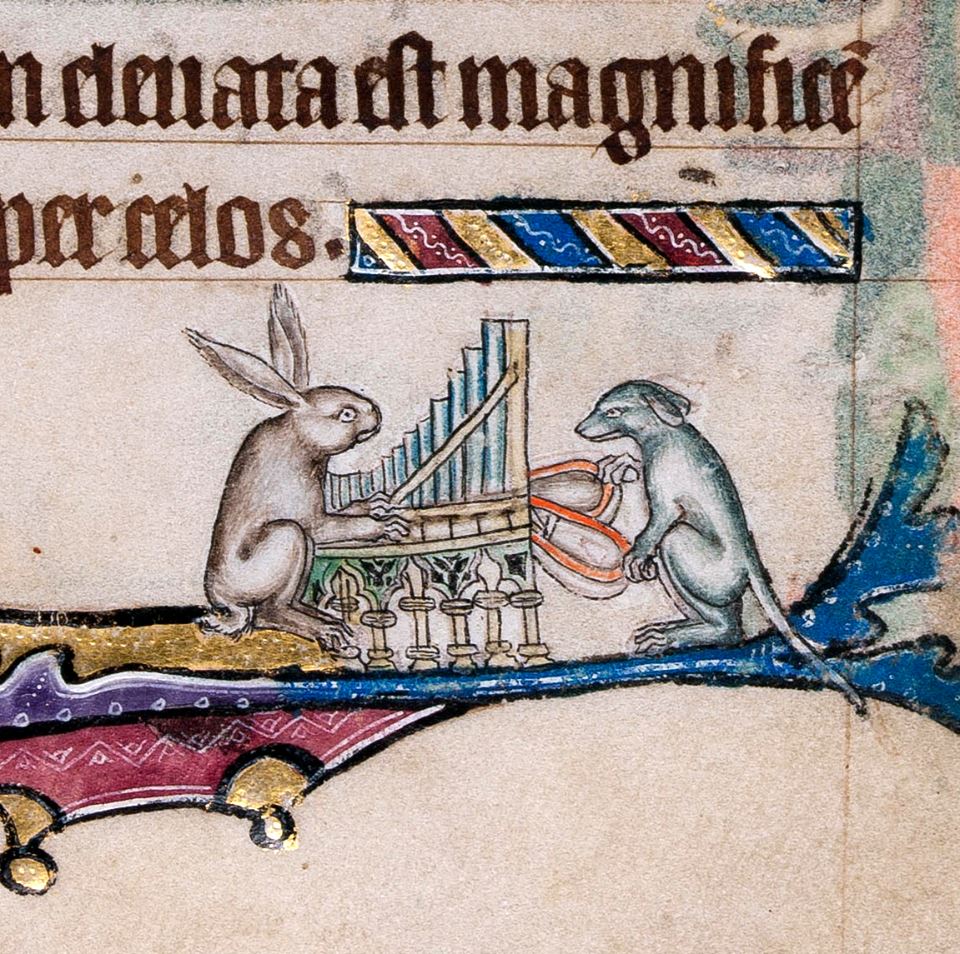 n eleuata est magnificē
per celos.